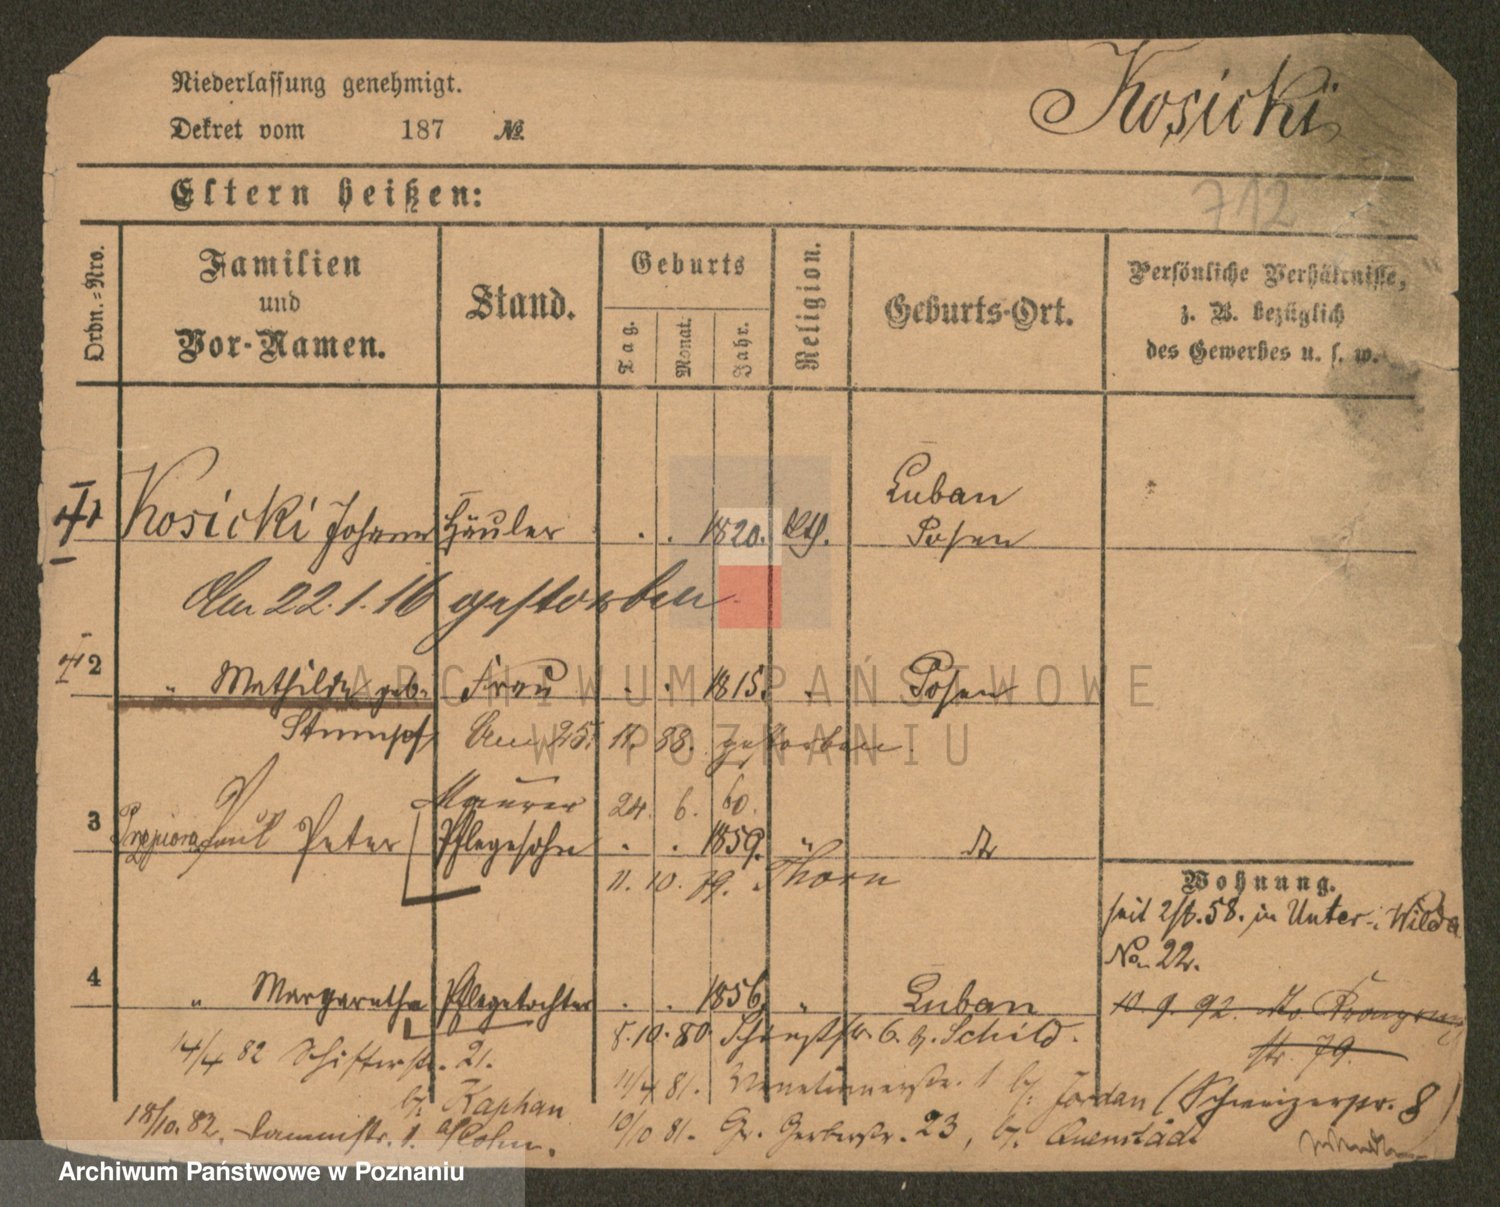 Niederlassung genehmigt.
Kosicki
Dekret vom 187 №
Eltern heißen:
712
Ordn.-Nro.
Familien und Vor-Namen.
Stand.
Geburts
Tag.
Monat.
Jahr.
Religion.
Geburts-Ort.
Persönliche Verhältnisse,
z. B. bezüglich
des Gewerbes u. s. w.
1 Kosicki Johann Häusler . . 1820. kth. Luban
Posen
Am 22.1.16 gestorben.
2 " Mathilde geb. Frau . . 1815. " Posen
Stumpf Am 25. 11. 88. gestorben.
Maurer 24. 6. 60.
3 Paul Peter Pflegesohn . . 1859. " dto
11. 10. 79. Thorn
Wohnung.
seit 58. in Unter-Wilda
No 22.
4 " Margaretha Pflegetochter . . 1856. " Luban
10.9.92. Kronprinz
str. 79.
8.10.80 6. b. Schild.
14/4 82 Schifferstr. 21.
b. Kaphan
11/4 81. Venetianerstr. 1 b. Jordan (Schweizerstr. 8)
18/10. 82. Dammstr. 1. a/Cohn.
10/10 81. Gr. Gerberstr. 23, b. Quenstädt
ARCHIWUM PAŃSTWOWE
W POZNANIU
Archiwum Państwowe w Poznaniu